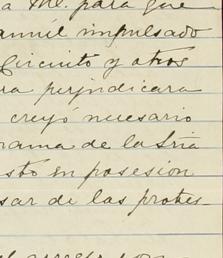 a Ml. para que
annúl impulsado
Circuito y otros
ra perjudicara
creyó necesario
rama de la Sría
esto en posesion
sar de las protes-